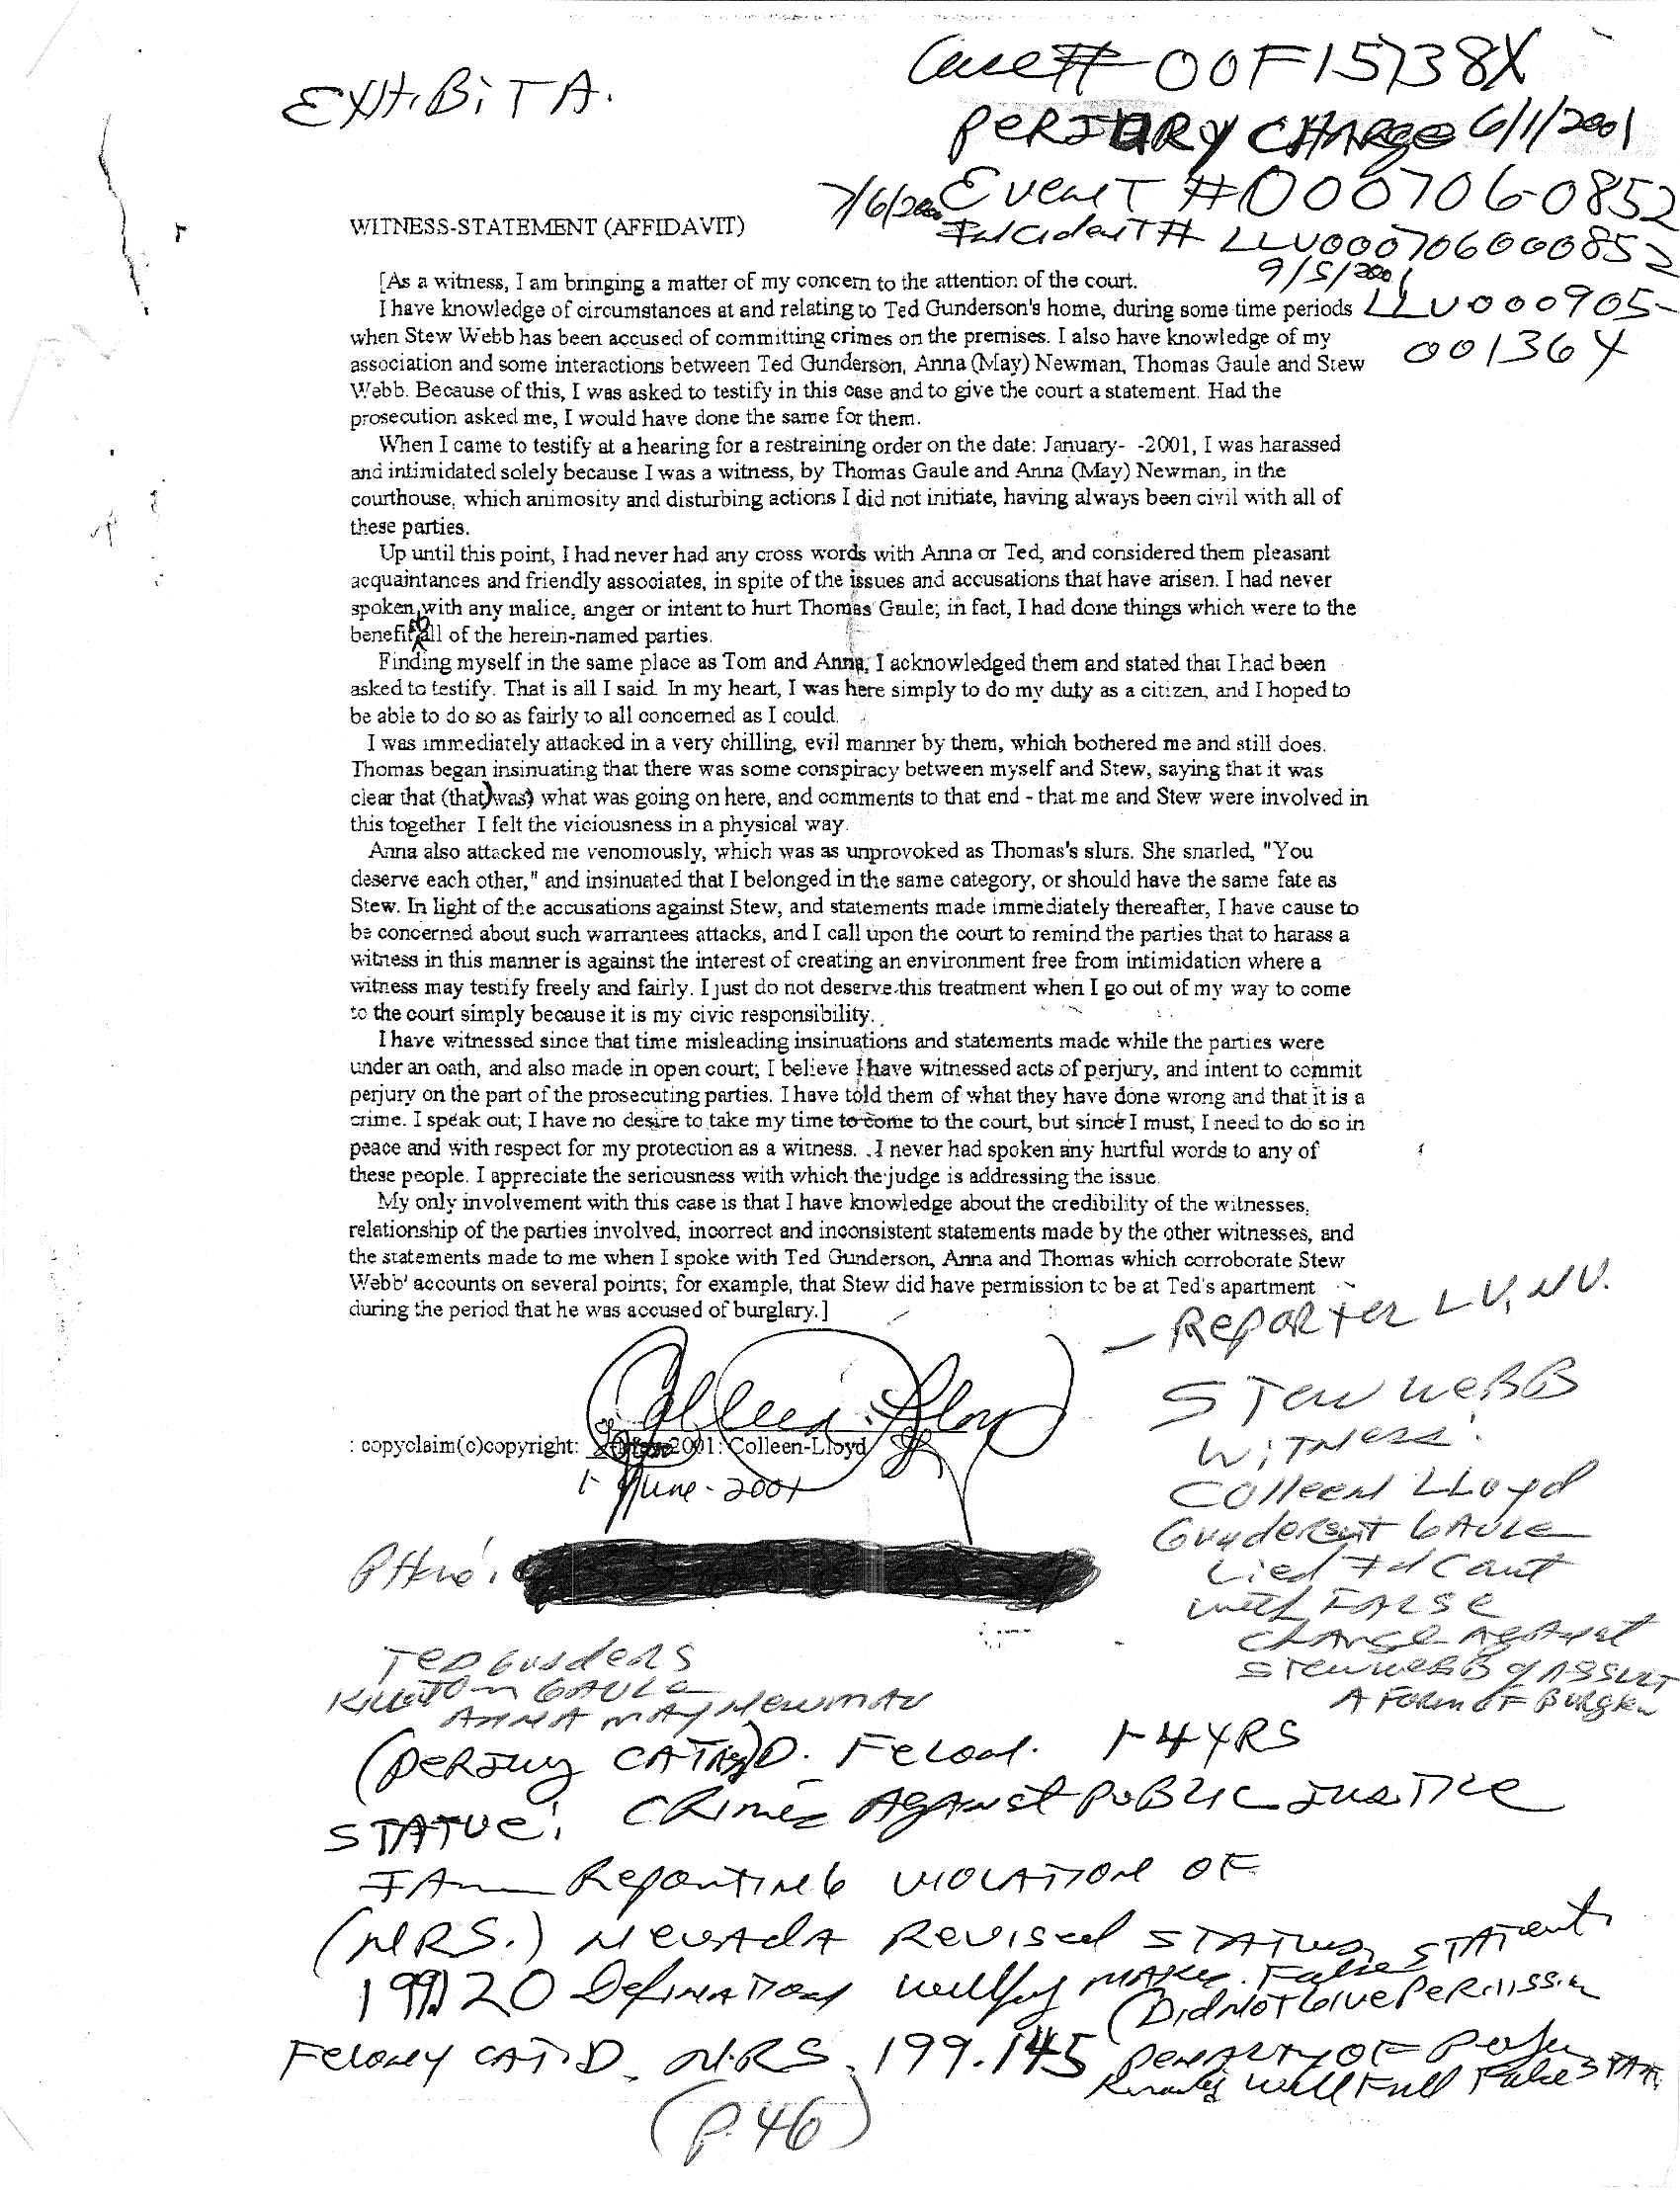 EXHiBiT A.
Case# 00F15738X
PERJURY CHARGE 6/1/2001
Event #000706-0852
7/6/200
Incident# LLV000706000852
9/5/2001
LLV000905-
001364
WITNESS-STATEMENT (AFFIDAVIT)
[As a witness, I am bringing a matter of my concern to the attention of the court.
I have knowledge of circumstances at and relating to Ted Gunderson's home, during some time periods
when Stew Webb has been accused of committing crimes on the premises. I also have knowledge of my
association and some interactions between Ted Gunderson, Anna (May) Newman, Thomas Gaule and Stew
Webb. Because of this, I was asked to testify in this case and to give the court a statement. Had the
prosecution asked me, I would have done the same for them.
When I came to testify at a hearing for a restraining order on the date: January- -2001, I was harassed
and intimidated solely because I was a witness, by Thomas Gaule and Anna (May) Newman, in the
courthouse, which animosity and disturbing actions I did not initiate, having always been civil with all of
these parties.
Up until this point, I had never had any cross words with Anna or Ted, and considered them pleasant
acquaintances and friendly associates, in spite of the issues and accusations that have arisen. I had never
spoken with any malice, anger or intent to hurt Thomas Gaule; in fact, I had done things which were to the
benefit to all of the herein-named parties.
Finding myself in the same place as Tom and Anna, I acknowledged them and stated that I had been
asked to testify. That is all I said. In my heart, I was here simply to do my duty as a citizen, and I hoped to
be able to do so as fairly to all concerned as I could.
I was immediately attacked in a very chilling, evil manner by them, which bothered me and still does.
Thomas began insinuating that there was some conspiracy between myself and Stew, saying that it was
clear that (that) was) what was going on here, and comments to that end - that me and Stew were involved in
this together. I felt the viciousness in a physical way.
Anna also attacked me venomously, which was as unprovoked as Thomas's slurs. She snarled, "You
deserve each other," and insinuated that I belonged in the same category, or should have the same fate as
Stew. In light of the accusations against Stew, and statements made immediately thereafter, I have cause to
be concerned about such warrantees attacks, and I call upon the court to remind the parties that to harass a
witness in this manner is against the interest of creating an environment free from intimidation where a
witness may testify freely and fairly. I just do not deserve this treatment when I go out of my way to come
to the court simply because it is my civic responsibility.
I have witnessed since that time misleading insinuations and statements made while the parties were
under an oath, and also made in open court; I believe I have witnessed acts of perjury, and intent to commit
perjury on the part of the prosecuting parties. I have told them of what they have done wrong and that it is a
crime. I speak out; I have no desire to take my time to come to the court, but since I must, I need to do so in
peace and with respect for my protection as a witness. . I never had spoken any hurtful words to any of
these people. I appreciate the seriousness with which the judge is addressing the issue.
My only involvement with this case is that I have knowledge about the credibility of the witnesses,
relationship of the parties involved, incorrect and inconsistent statements made by the other witnesses, and
the statements made to me when I spoke with Ted Gunderson, Anna and Thomas which corroborate Stew
Webb' accounts on several points; for example, that Stew did have permission to be at Ted's apartment
during the period that he was accused of burglary.]
— Reporter LV, NV.
Colleen Lloyd
: copyclaim(c)copyright: 2001: Colleen-Lloyd
1 June-2001
Phone:
STEW WEBB
WiTNess:
Colleen LLoyd
Gunderson GAULE
Lied Court
with FALSE
CHARGE AGAinst
STEW WEBB
A Form OF Burglary
TED Gunderson
Tom GAULE
ANNA MAY NEWMAN
(PERJury CAT D. Felony. 1-4 YRS
STATUE: CRimes AGAinst PUBLIC JUSTICE
I Am REPORTING VIOLATION OF
(NRS.) NEVADA Revised STATUES
199120 DEFINATION willfuly MAKES False STATments
(Did NOT GIVE PERMISSION
Felony CAT.D. N.R.S. 199.145 PENALTY OF Perjury
WILLFULL False STAT.
(P.46)